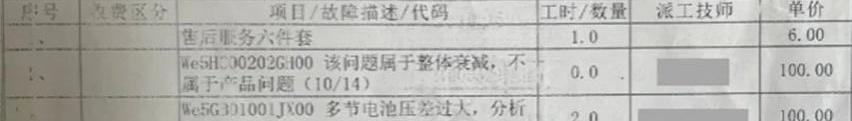 序号 收费区分 项目/故障描述/代码 工时/数量 派工技师 单价
售后服务六件套 1.0 6.00
该问题属于整体衰减，不 0.0 100.00
属于产品问题（10/14）
We5G301001JX00 多节电池压差过大，分析 2.0 100.00